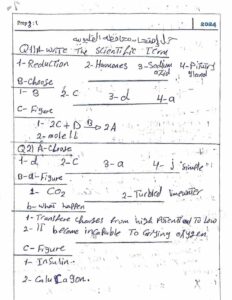 Prep: 1 2024
Q1) A- Write The Scientific Term
1- Reduction 2- Hormones 3- Sodium azid 4- Pituitary gland
B- Choose
1- B 2- C 3- d 4- a
C- Figure
1- 2C + D → 2A
2- mole 11
Q2) A- Choose
1- d 2- C 3- a 4- j "simple"
B- a- Figure
1- CO2 2- Turbled limewater
b- what happen
1- Transfere charges from high Potential To Low
2- It become incapable To Carying oxygen
C- Figure
1- Insulin.
2- Glucagon.